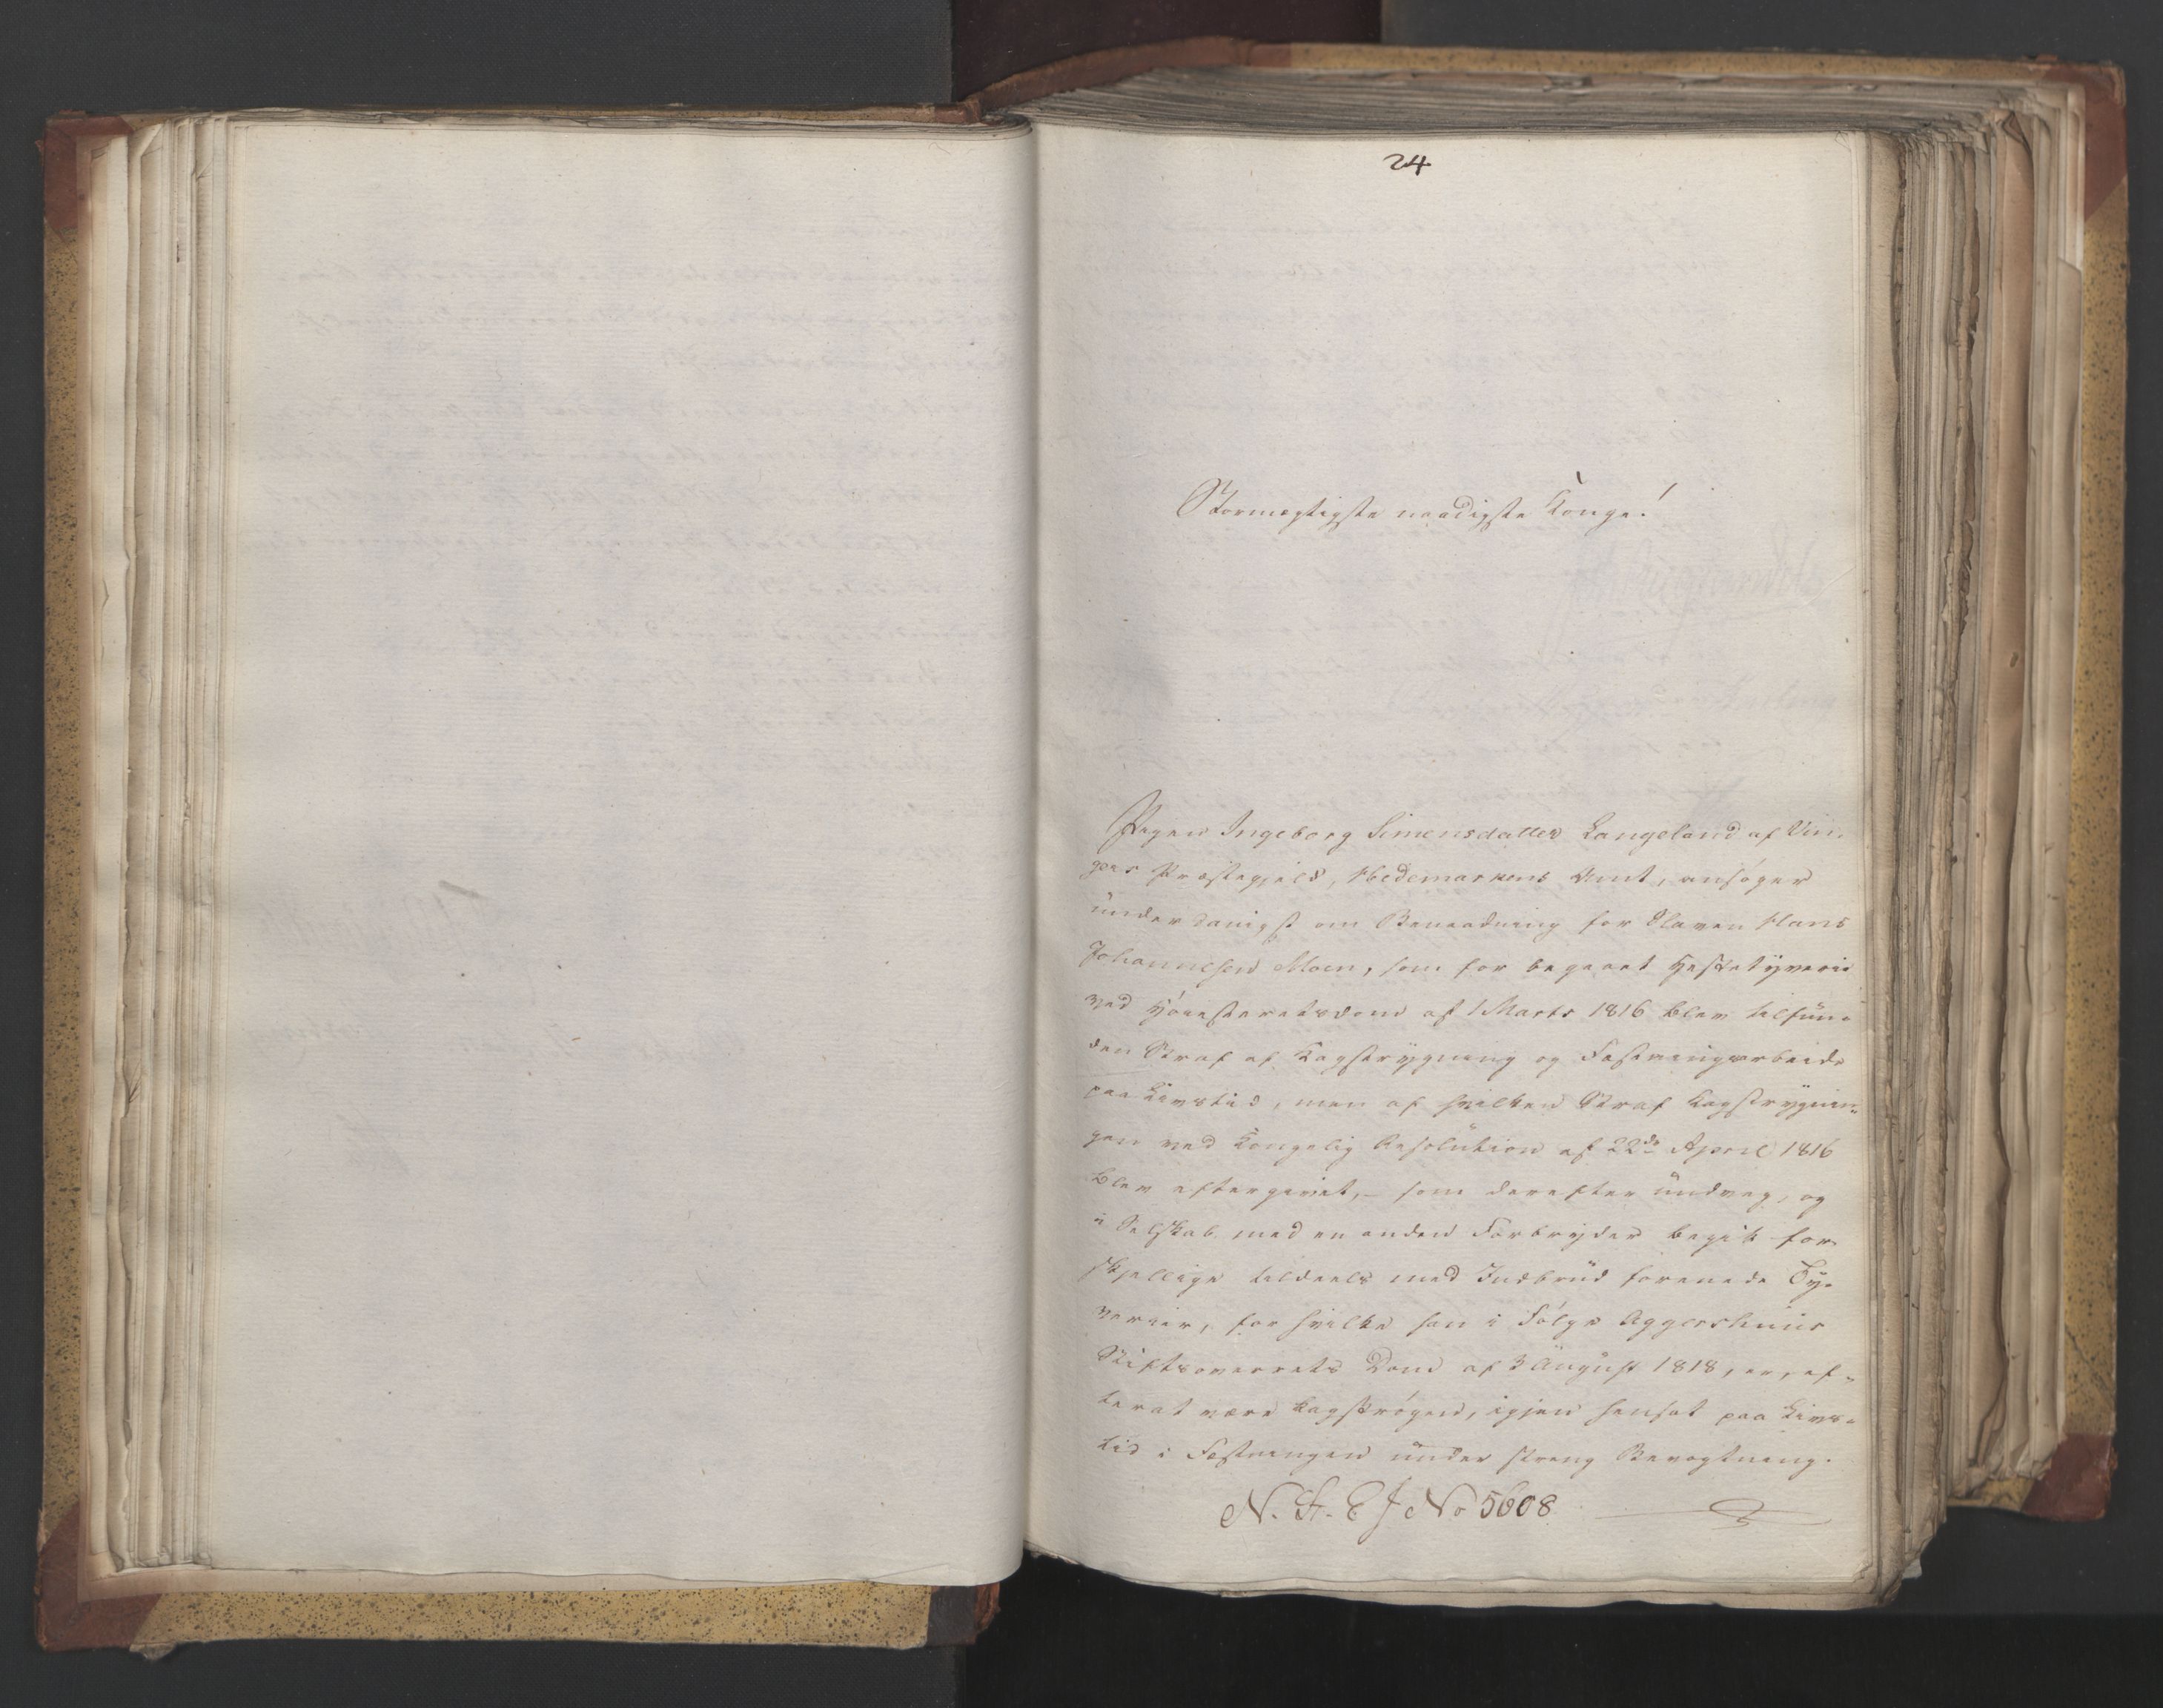 24
Stormægtigste naadigste Konge!
Pigen Ingeborg Simensdatter Langeland af Vin-
gers Præstegjeld, Hedemarkens Amt, ansøger
underdanigst om Benaadning for Slaven Hans
Johannesen Moen, som for begaaet Hestetyverie
ved Høiesteretsdom af 1 Marts 1816 blev tilfun-
den Straf af Kagstrygning og Fæstningsarbeide
paa Livstid, men af hvilken Straf Kagstrygnin-
gen ved Kongelig Resolution af 22de April 1816
blev eftergivet, – som derefter undveg, og
i Selskab med en anden Forbryder begik for-
skjellige tildeels med Indbrud forenede Ty-
verier, for hvilke han i Følge Aggershuus
Stiftsoverrets Dom af 3 August 1818, er, ef-
terat være kagstrøgen, igjen hensat paa Livs-
tid i Fæstningen under streng Bevogtning.
N. St. E J No 5608